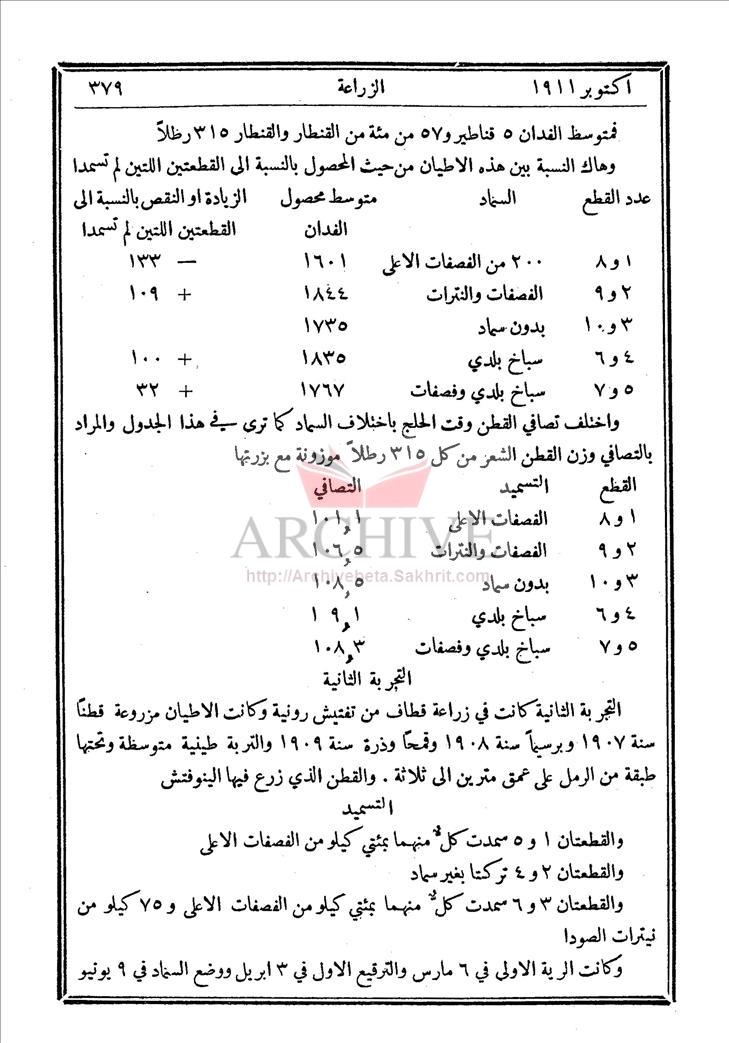 اكتوبر ١٩١١ الزراعة ٣٧٩
فمتوسط الفدان ٥ قناطير و٥٧ من مئة من القنطار والقنطار ٣١٥ رطلاً
وهاك النسبة بين هذه الاطيان من حيث المحصول بالنسبة الى القطعتين اللتين لم تسمدا
عدد القطع السماد متوسط محصول الزيادة او النقص بالنسبة الى
الفدان القطعتين اللتين لم تسمدا
١ و٨ ٢٠٠ من الفصفات الاعلى ١٦٠١ — ١٣٣
٢ و٩ الفصفات والنترات ١٨٤٤ + ١٠٩
٣ و١٠ بدون سماد ١٧٣٥
٤ و٦ سباخ بلدي ١٨٣٥ + ١٠٠
٥ و٧ سباخ بلدي وفصفات ١٧٦٧ + ٣٢
واختلف تصافي القطن وقت الحلج باختلاف السماد كما ترى في هذا الجدول والمراد
بالتصافي وزن القطن الشعر من كل ٣١٥ رطلاً موزونة مع بزرتها
القطع التسميد التصافي
١ و٨ الفصفات الاعلى ١٠١,١
٢ و٩ الفصفات والنترات ١٠٦,٥
٣ و١٠ بدون سماد ١٠٨,٥
٤ و٦ سباخ بلدي
٥ و٧ سباخ بلدي وفصفات ١٠٨,٣
ARCHIVE
http://Archivebeta.Sakhrit.com
التجربة الثانية
التجربة الثانية كانت في زراعة قطاف من تفتيش رونية وكانت الاطيان مزروعة قطنًا
سنة ١٩٠٧ وبرسيماً سنة ١٩٠٨ وقمحًا وذرة سنة ١٩٠٩ والتربة طينية متوسطة وتحتها
طبقة من الرمل على عمق مترين الى ثلاثة . والقطن الذي زرع فيها الينوفتش
التسميد
والقطعتان ١ و ٥ سمدت كلٌّ منهما بمئتي كيلو من الفصفات الاعلى
والقطعتان ٢ و ٤ تركتا بغير سماد
والقطعتان ٣ و ٦ سمدت كلٌّ منهما بمئتي كيلو من الفصفات الاعلى و ٧٥ كيلو من
نيترات الصودا
وكانت الرية الاولى في ٦ مارس والترقيع الاول في ٣ ابريل ووضع السماد في ٩ يونيو